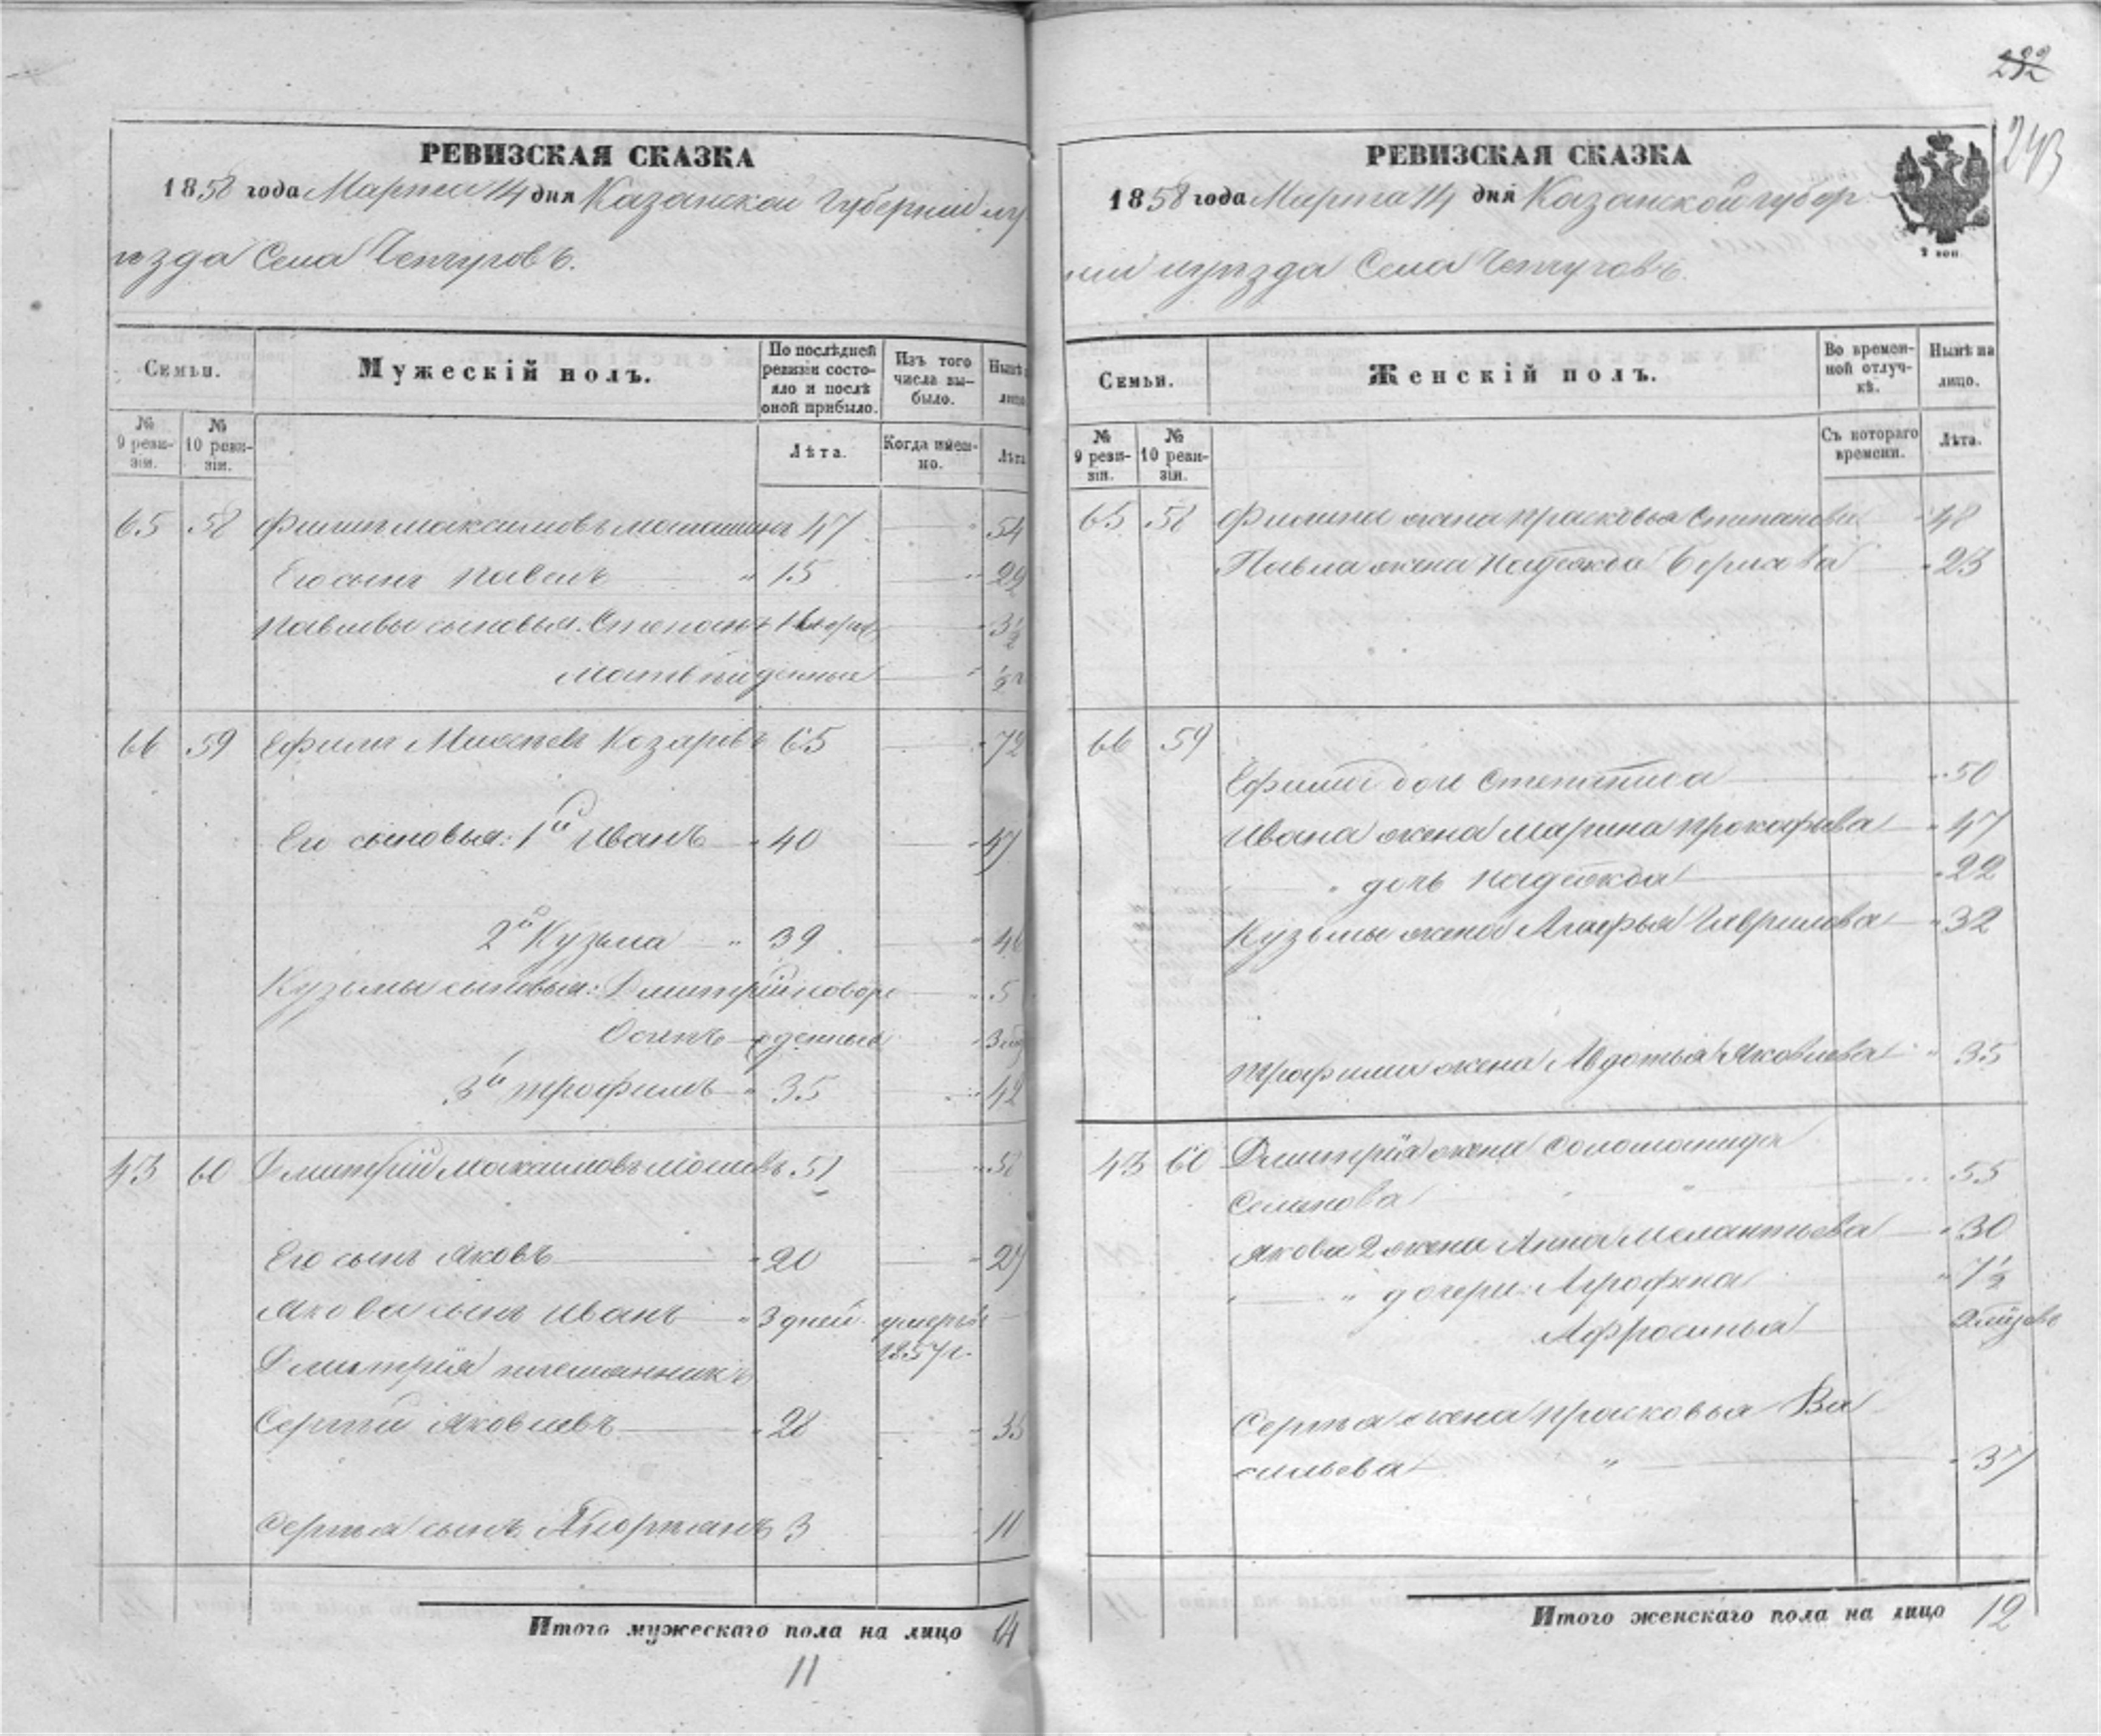 232
243
РЕВИЗСКАЯ СКАЗКА
1858 года Марта 14 дня Казанской Губерніи
уѣзда Села
Семьи.
Мужескій полъ.
По послѣдней ревизіи состояло и послѣ оной прибыло.
Изъ того числа выбыло.
Нынѣ
лицо
№ 9 ревизіи.
№ 10 ревизіи.
Лѣта.
Когда именно.
Лѣта
65 58 Филипъ Максимовъ 47 54
Его сынъ Павелъ 15 22
Павловы сыновья: Степанъ 3½
Матвѣй ½
66 59 Ефимъ Козаревъ 65 72
Его сыновья: 1й Иванъ 40 47
2й Кузьма 39 46
Кузьмы сыновья: Дмитрій новоро 5
Осипъ жденные
3й Трофимъ 35 42
43 60 Дмитрій Максимовъ 51 58
Его сынъ Яковъ 20 27
Якова сынъ Иванъ 3 дней умеръ въ
1857 г.
Дмитрія племянникъ
Сергѣй Яковлевъ 28 35
Сергѣя сынъ 3 11
Итого мужескаго пола на лицо 14
11
РЕВИЗСКАЯ СКАЗКА
1858 года Марта 14 дня Казанской губер
ніи уѣзда Села
2 коп
Семьи.
Женскій полъ.
Во временной отлучкѣ.
Нынѣ на лицо.
№ 9 ревизіи.
№ 10 ревизіи.
Съ котораго времени.
Лѣта.
65 58 Филипа жена Прасковья Степанова 48
Павла жена Надежда Борисова 23
66 59
Ефима дочь Степанида 50
Ивана жена Марина Прокофьева 47
дочь Надежда 22
Кузьмы жена Агафья Гаврилова 32
Трофима жена Авдотья Яковлева 35
43 60 Дмитрія жена Соломонида
Семенова 55
Якова 2 жена Анна Мелантьева 30
дочери: Агрофена 7½
Афросинья
Сергѣя жена Прасковья Ва
сильева 37
Итого женскаго пола на лицо 12